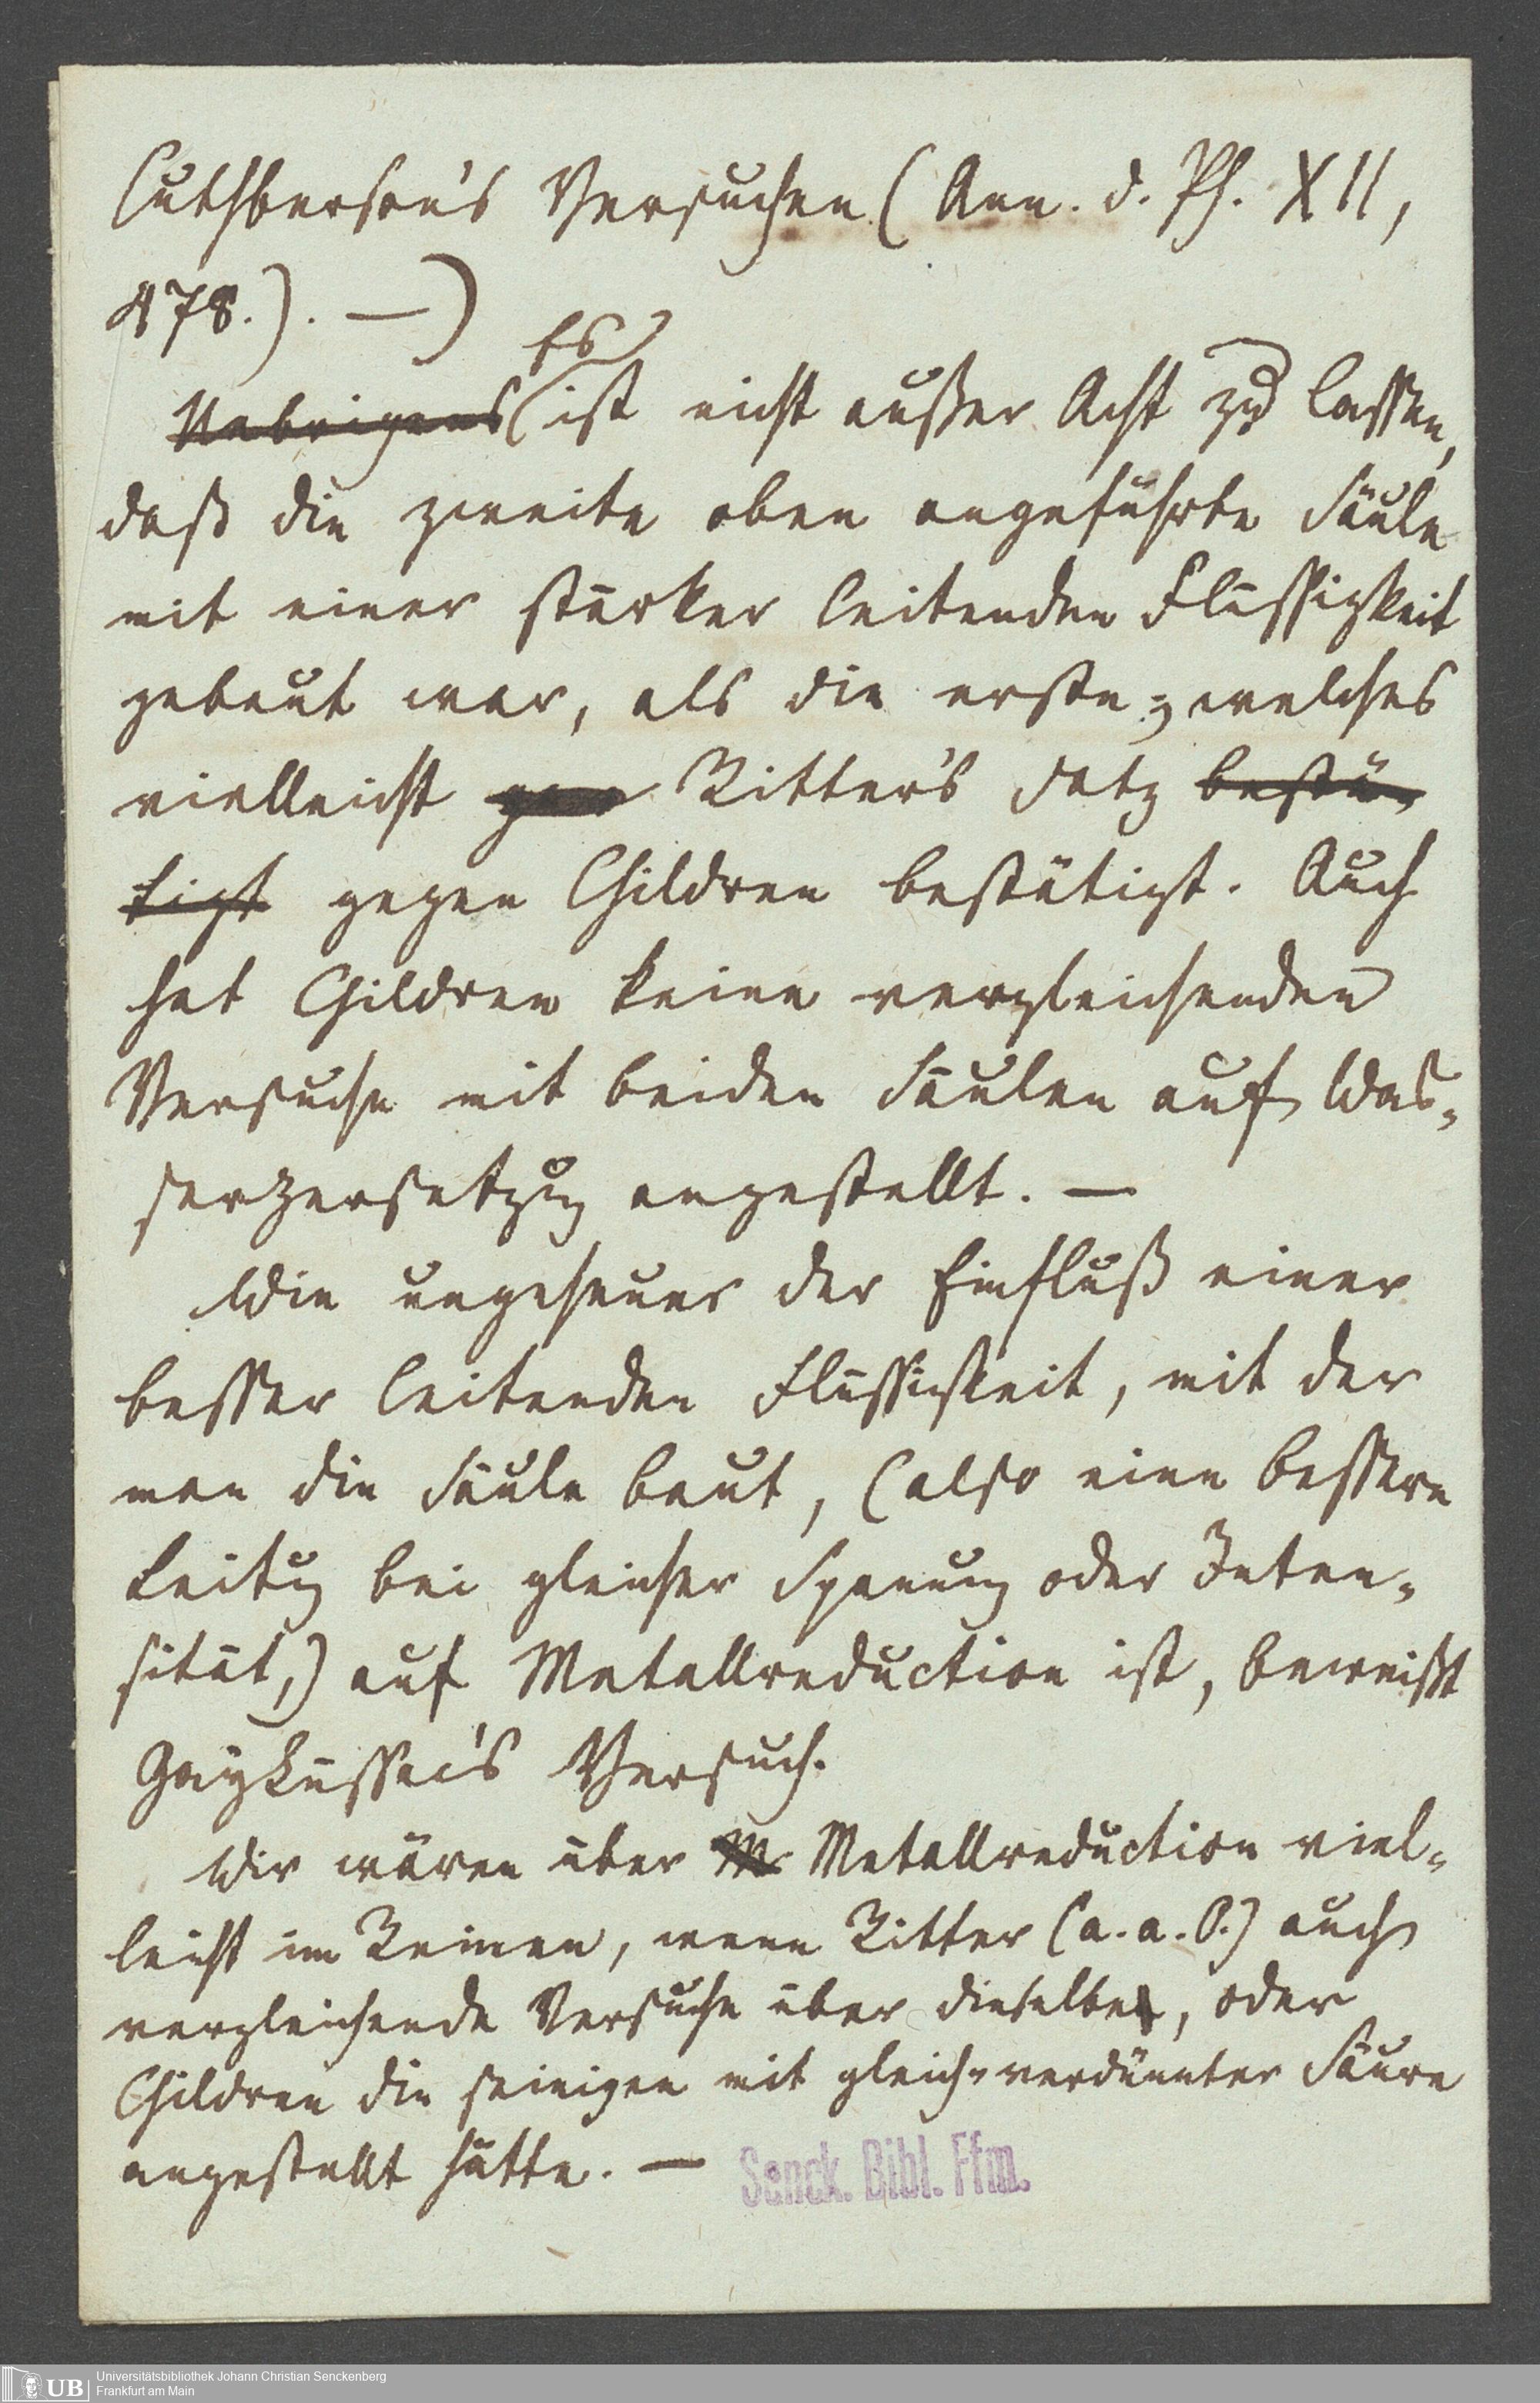 Cuthberson's Versuchen (Ann. d. Ph. XII,
478.). —)
Es
Uebrigens (ist nicht außer Acht zu lassen,
daß die zweite oben angeführte Säule
mit einer stärker leitenden Flüssigkeit
gebaut war, als die erste; welches
vielleicht Ritter's Satz bestä-
tigt gegen Children bestätigt. Auch
hat Children keine vergleichenden
Versuche mit beiden Säulen auf Was-
serzersetzug angestellt. —
Wie ungeheuer der Einfluß einer
besser leitenden Flüssigkeit, mit der
man die Säule baut, (also eine bessere
Leitug bei gleicher Spanung oder Inten-
sität,) auf Metallreduction ist, beweißt
Gaylüssac's Versuch.
Wir wären über M Metallreduction viel-
leicht im Reinen, wenn Ritter (a. a. O.) auch
vergleichende Versuche über dieselbe, oder
Children die seinigen mit gleich-verdünnter Säure
angestellt hätte. —
Senck. Bibl. Ffm.
UB
Universitätsbibliothek Johann Christian Senckenberg
Frankfurt am Main